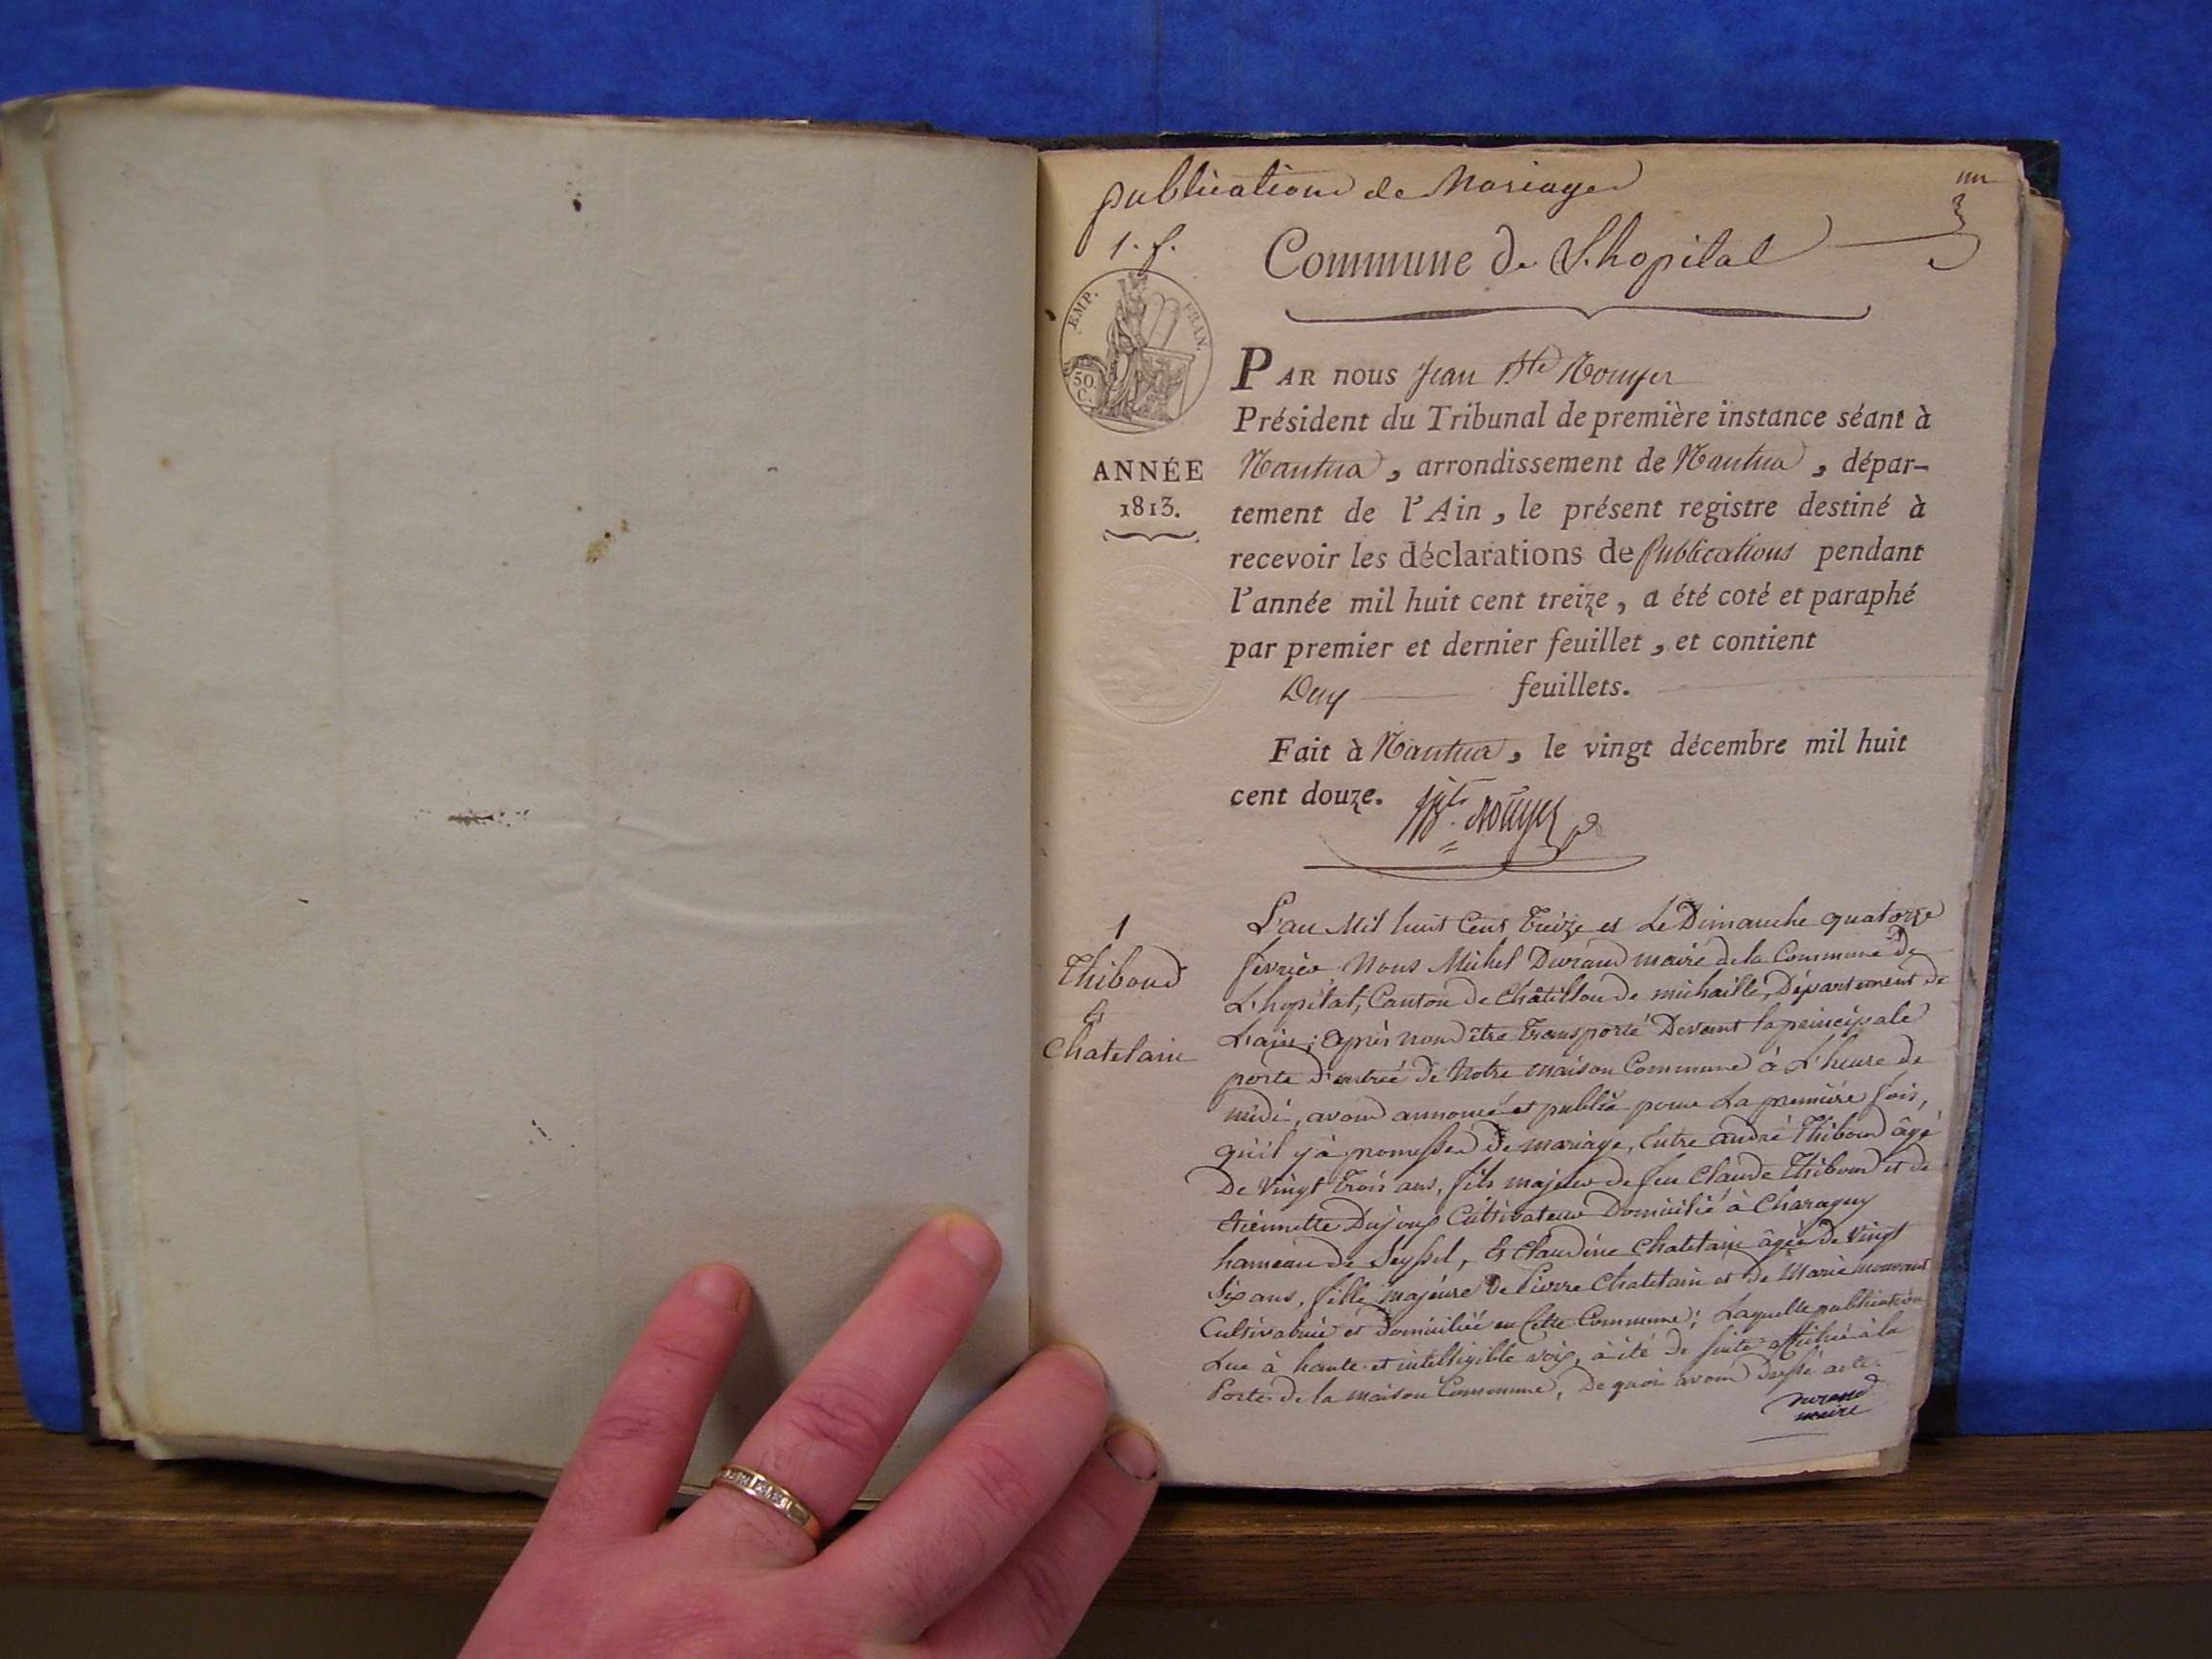 publications de Mariages
un
1. f.
Commune de L'hopital
EMP. FRAN.
50 C.
ANNÉE
1813.
PAR nous Jean Bte Rouyer
Président du Tribunal de première instance séant à
Nantua, arrondissement de Nantua, dépar-
tement de l'Ain, le présent registre destiné à
recevoir les déclarations de Publications pendant
l'année mil huit cent treize, a été coté et paraphé
par premier et dernier feuillet, et contient
Deux feuillets.
Fait à Nantua, le vingt décembre mil huit
cent douze. JB.te Rouyer
1
Thiboud
&
Chatelain
L'an Mil huit Cent Treize et Le Dimanche quatorze
février Nous Michel Durand maire de la Commune de
L'hopital, Canton de Châtillon de michaille, Département de
L'ain; après nous être Transporté Devant la principale
porte d'entrée de Notre maison Commune à L'heure de
midi, avons annoncé et publié pour La première fois,
qu'il y à promesses de mariage, Entre andré Thiboud âgé
De Vingt Trois ans, fils majeur de feu Claude Thiboud et de
Etiennette Dujoux Cultivateur Domicilié à Charagny
hameau de Seyssel, Et Claudine Chatelain âgée de Vingt
Six ans, fille majeure De Pierre Chatelain et de Marie mourant
Cultivatrice et domiciliée en Cette Commune; Laquelle publication
Lue à haute et intelligible voix, à été de suite affiché à la
Porte de la maison Commune, De quoi avons Dressé acte.
Durand
maire